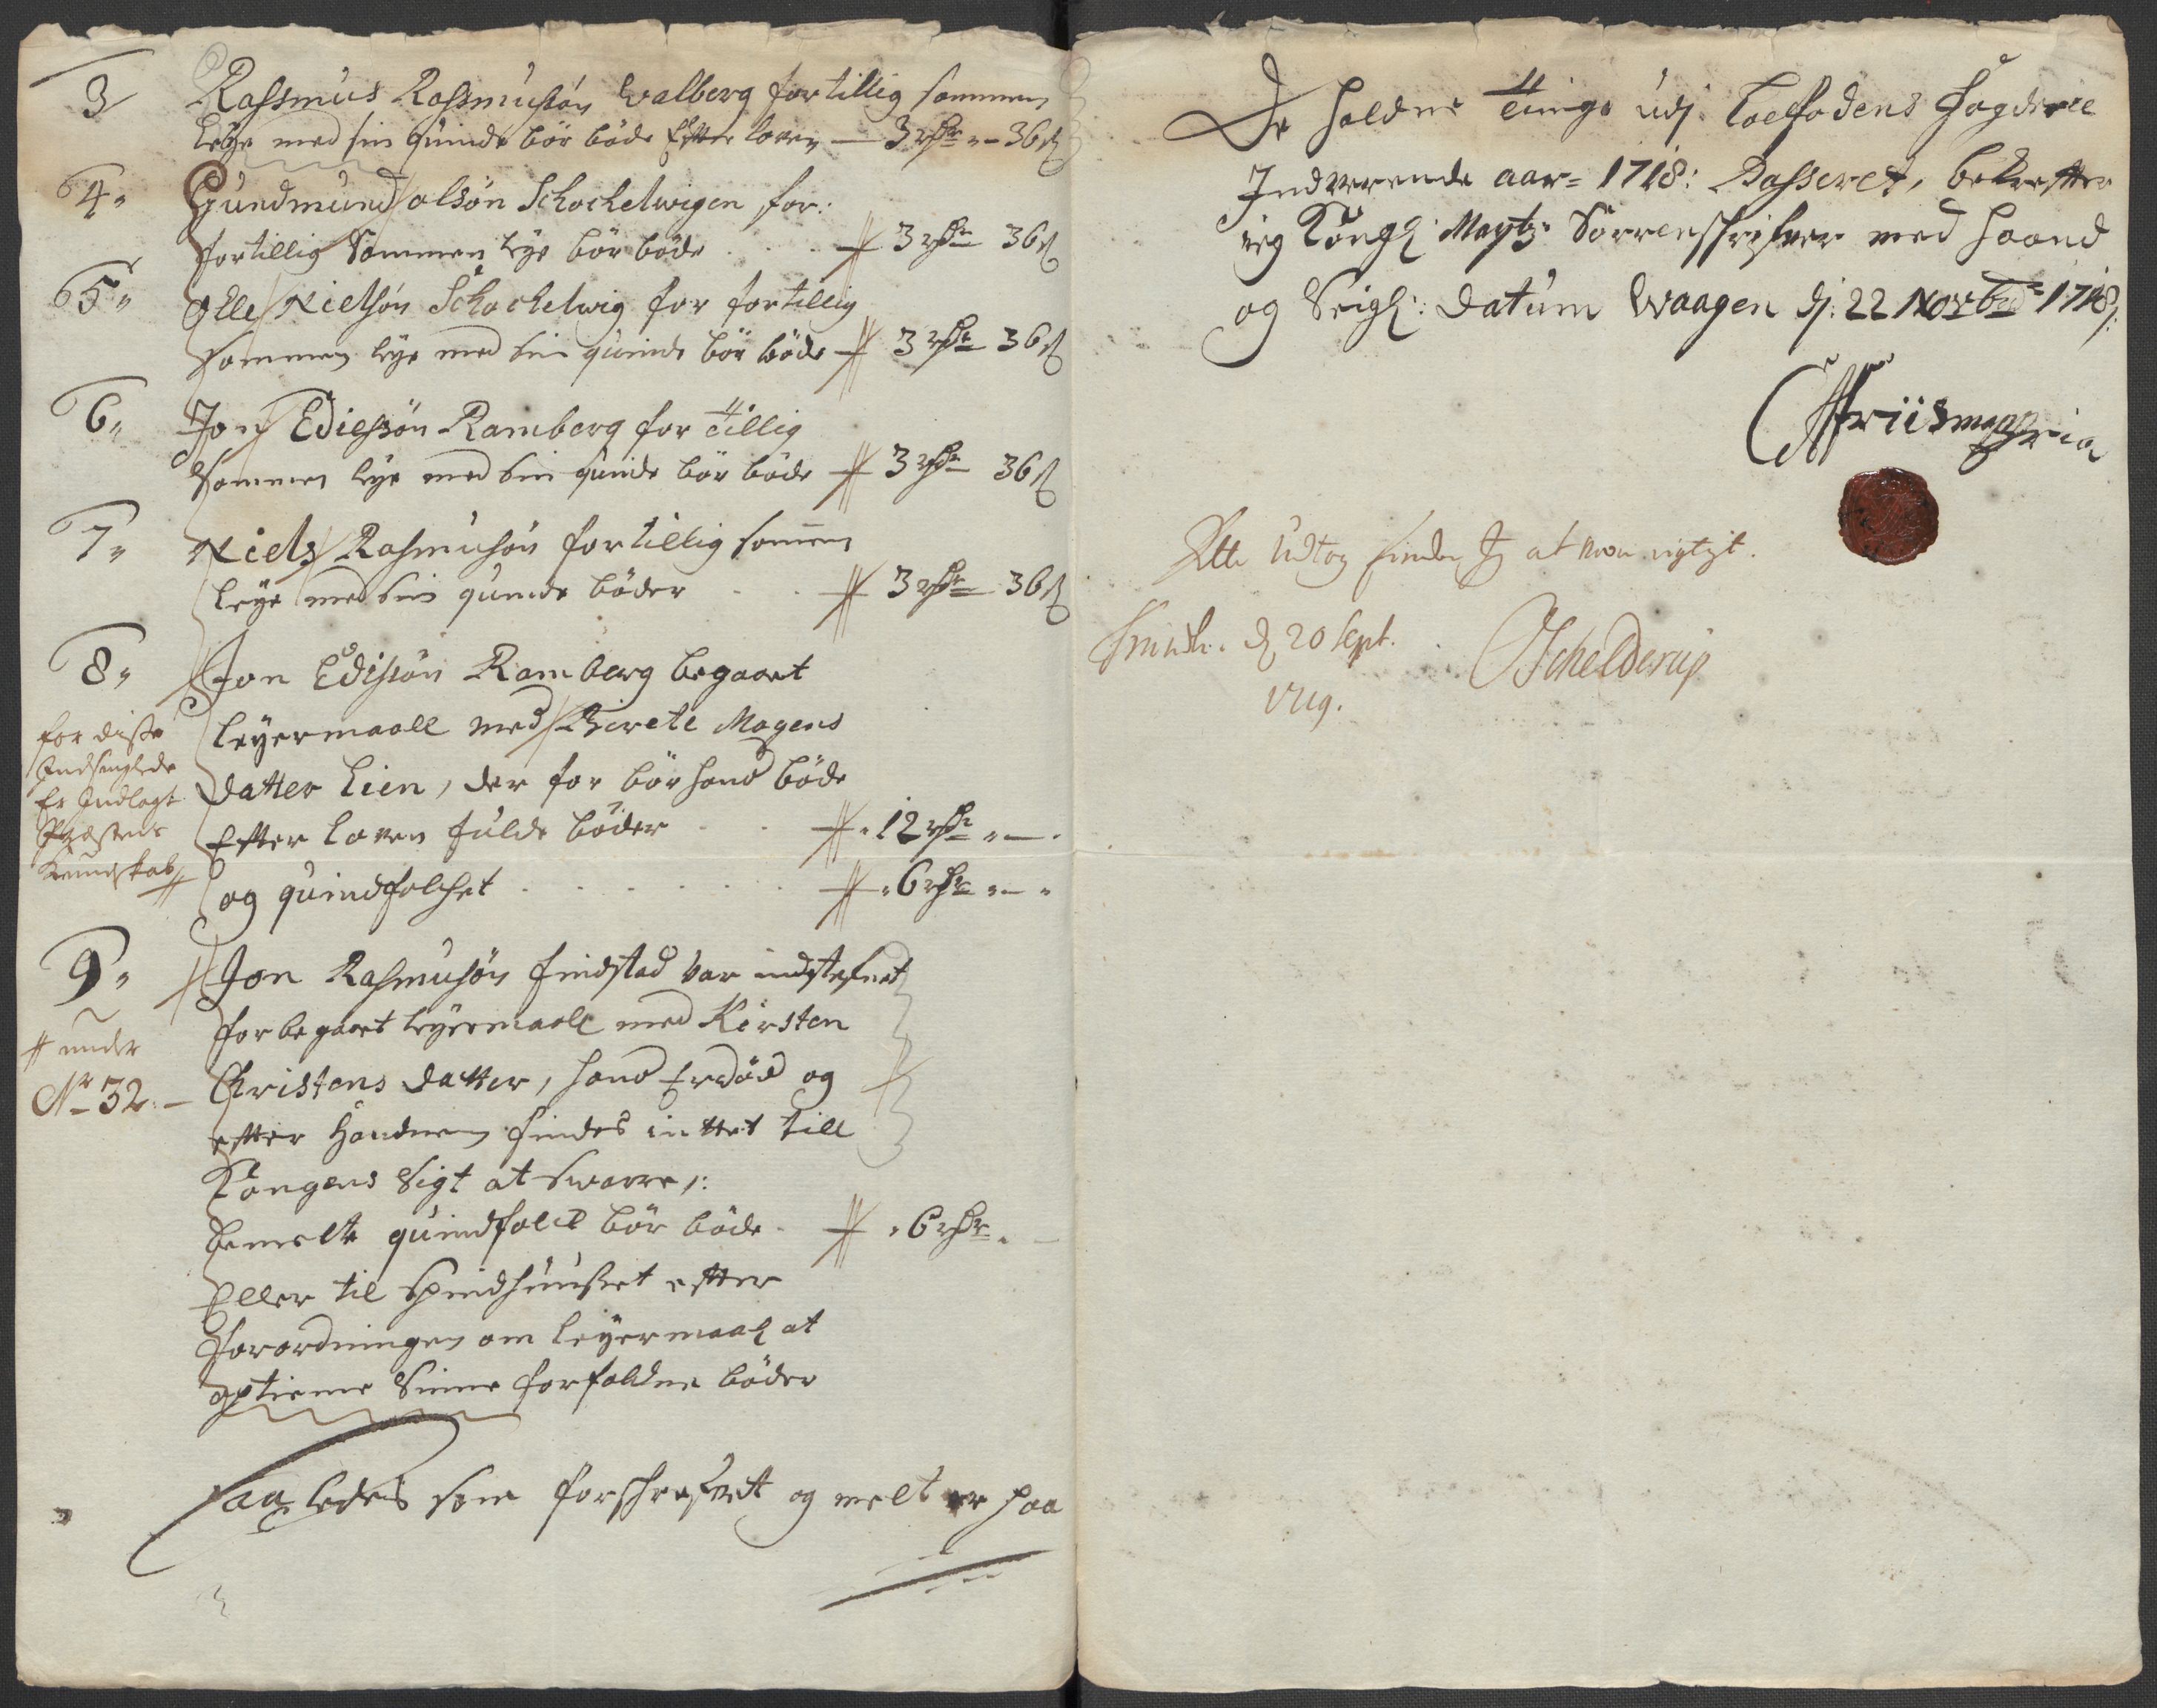 3 Rasmus Rasmusøn Walberg for tillig sammen
leye med sin quinde bör böde Efter loven — 3 rdr - 36 ß
4. Gundmund olsøn Schochelwigen for:
for tillig Sammen leye bör böde 3 rdr 36 ß
5. Olle Nielsøn Schochelwig for for tillig
sammen leye med sin quinde bör böde 3 rdr 36 ß
6. Jon Ediessøn Ramberg for tillig
Sammen leye med sin quinde bör böde 3 rdr 36 ß
7. Niels Rasmusøn for tillig samen
leye med sin quinde böder 3 rdr 36 ß
8. Jon Edissøn Ramberg begaaet
leyermaall med Birete Mogens
datter Lien, der for bör hand böde
Efter loven fulde böder 12 rdr
og quindfolchet 6 rdr
for disse
Er Indlagt
Præstens
Kundskab
9. Jon Rasmusøn Findstad var indstefnet
for begaaet leyermaall med Kirsten
Christens datter, hand Er död og
efter handnem findes inttet till
Kongens Sigt at Svarre,:
bemelte quindfolck bör böde 6 rdr
Eller til Spindhuuset efter
forordningen om leyermaal at
optienne Sinne forfaldne böder
under
No 32
Saaledes som forschrefvet og melt er paa
De holdne tinge udj Loefodens fogderie
Indverende aar 1718: Passeret, bekrefter
ieg Kongl: Maytz: Sorrenschrifver med haand
og Seigl: Datum Waagen dj: 22 Novbr 1718:
Friis mppria
Dette Udtog finder Jeg at være rigtigt.
d 20 Sept. Schelderup
1719.